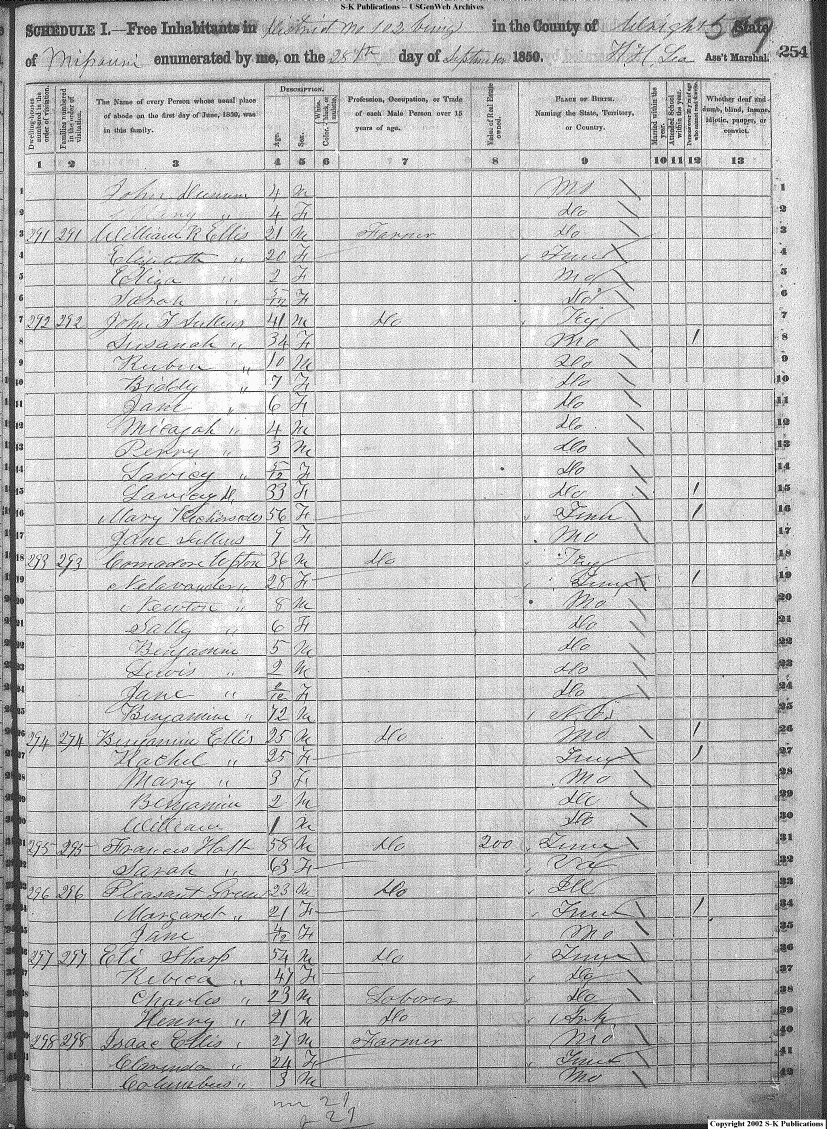 S-K Publications -- USGenWeb Archives
SCHEDULE I.—Free Inhabitants in District No 102 being in the County of Wright State
of Missouri enumerated by me, on the 28th day of September 1850. Ass't Marshal. 254
DESCRIPTION.
Dwelling-houses numbered in the order of visitation.
Families numbered in the order of visitation.
The Name of every Person whose usual place of abode on the first day of June, 1850, was in this family.
Age.
Sex.
Color, White, black, or mulatto.
Profession, Occupation, or Trade of each Male Person over 15 years of age.
Value of Real Estate owned.
PLACE OF BIRTH. Naming the State, Territory, or Country.
Married within the year.
Attended School within the year.
Persons over 20 y'rs of age who cannot read & write.
Whether deaf and dumb, blind, insane, idiotic, pauper, or convict.
1 2 3 4 5 6 7 8 9 10 11 12 13
1 John 4 M Mo 1
2 Mary " 4 F Do 2
3 291 291 William R Ellis 21 M Farmer Do 3
4 Elizabeth " 20 F Tenn 4
5 Eliza " 2 F Mo 5
6 Sarah " F Do 6
7 292 292 John T Sullins 41 M Do Ky 7
8 Susanah " 34 F Mo 1 8
9 Rubin " 10 M Do 9
10 Biddy " 7 F Do 10
11 Jane " 6 F Do 11
12 Micajah " 4 M Do 12
13 Perry " 3 M Do 13
14 Lavicy " 5/12 F Do 14
15 Lavicy 33 F Do 1 15
16 Mary 56 F Tenn 1 16
17 Jane Sullins 9 F Mo 17
18 293 293 Comadore 36 M Do Ky 18
19 " 28 F Tenn 1 19
20 Newton " 8 M Mo 20
21 Sally " 6 F Do 21
22 Benjamin 5 M Do 22
23 Lewis " 2 M Do 23
24 Jane " F Do 24
25 Benjamine " 72 M 25
26 294 294 Benjamin Ellis 25 M Do Mo 1 26
27 Rachel " 25 F Tenn 1 27
28 Mary " 3 F Mo 28
29 Benjamin 2 M Do 29
30 William 1 M Do 30
31 295 295 Francis 58 M Do 200 Tenn 31
32 Sarah " 63 F Va 32
33 296 296 Pleasant 23 M Do Ill 33
34 Margaret " 21 F Tenn 1 34
35 Jane 4/12 F Mo 35
36 297 297 Eli Sharp 54 M Do Tenn 36
37 Rebica " 47 F Do 37
38 Charlis " 23 M Laborer Do 38
39 Henry " 21 M Do Ark 39
40 298 298 Isaac Ellis " 27 M Farmer Mo 40
41 Clarinda " 24 F Tenn 41
42 Columbus " 3 M Mo 42
21
21
Copyright 2002 S-K Publications